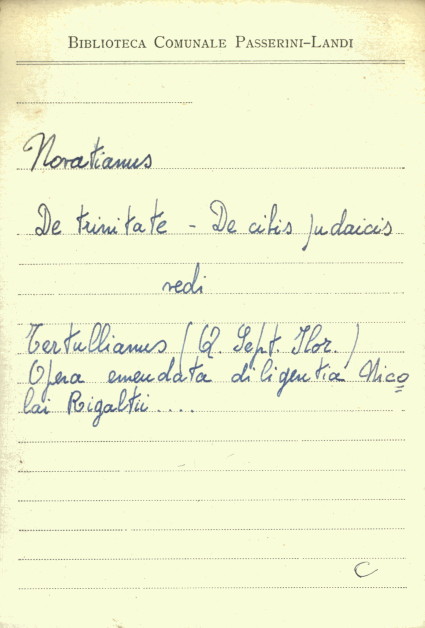 BIBLIOTECA COMUNALE PASSERINI-LANDI
Novatianus
De trinitate - De cibis judaicis
vedi
Tertullianus (Q. Sept. Flor.)
Opera emendata diligentia Nico
lai Rigaltii....
C